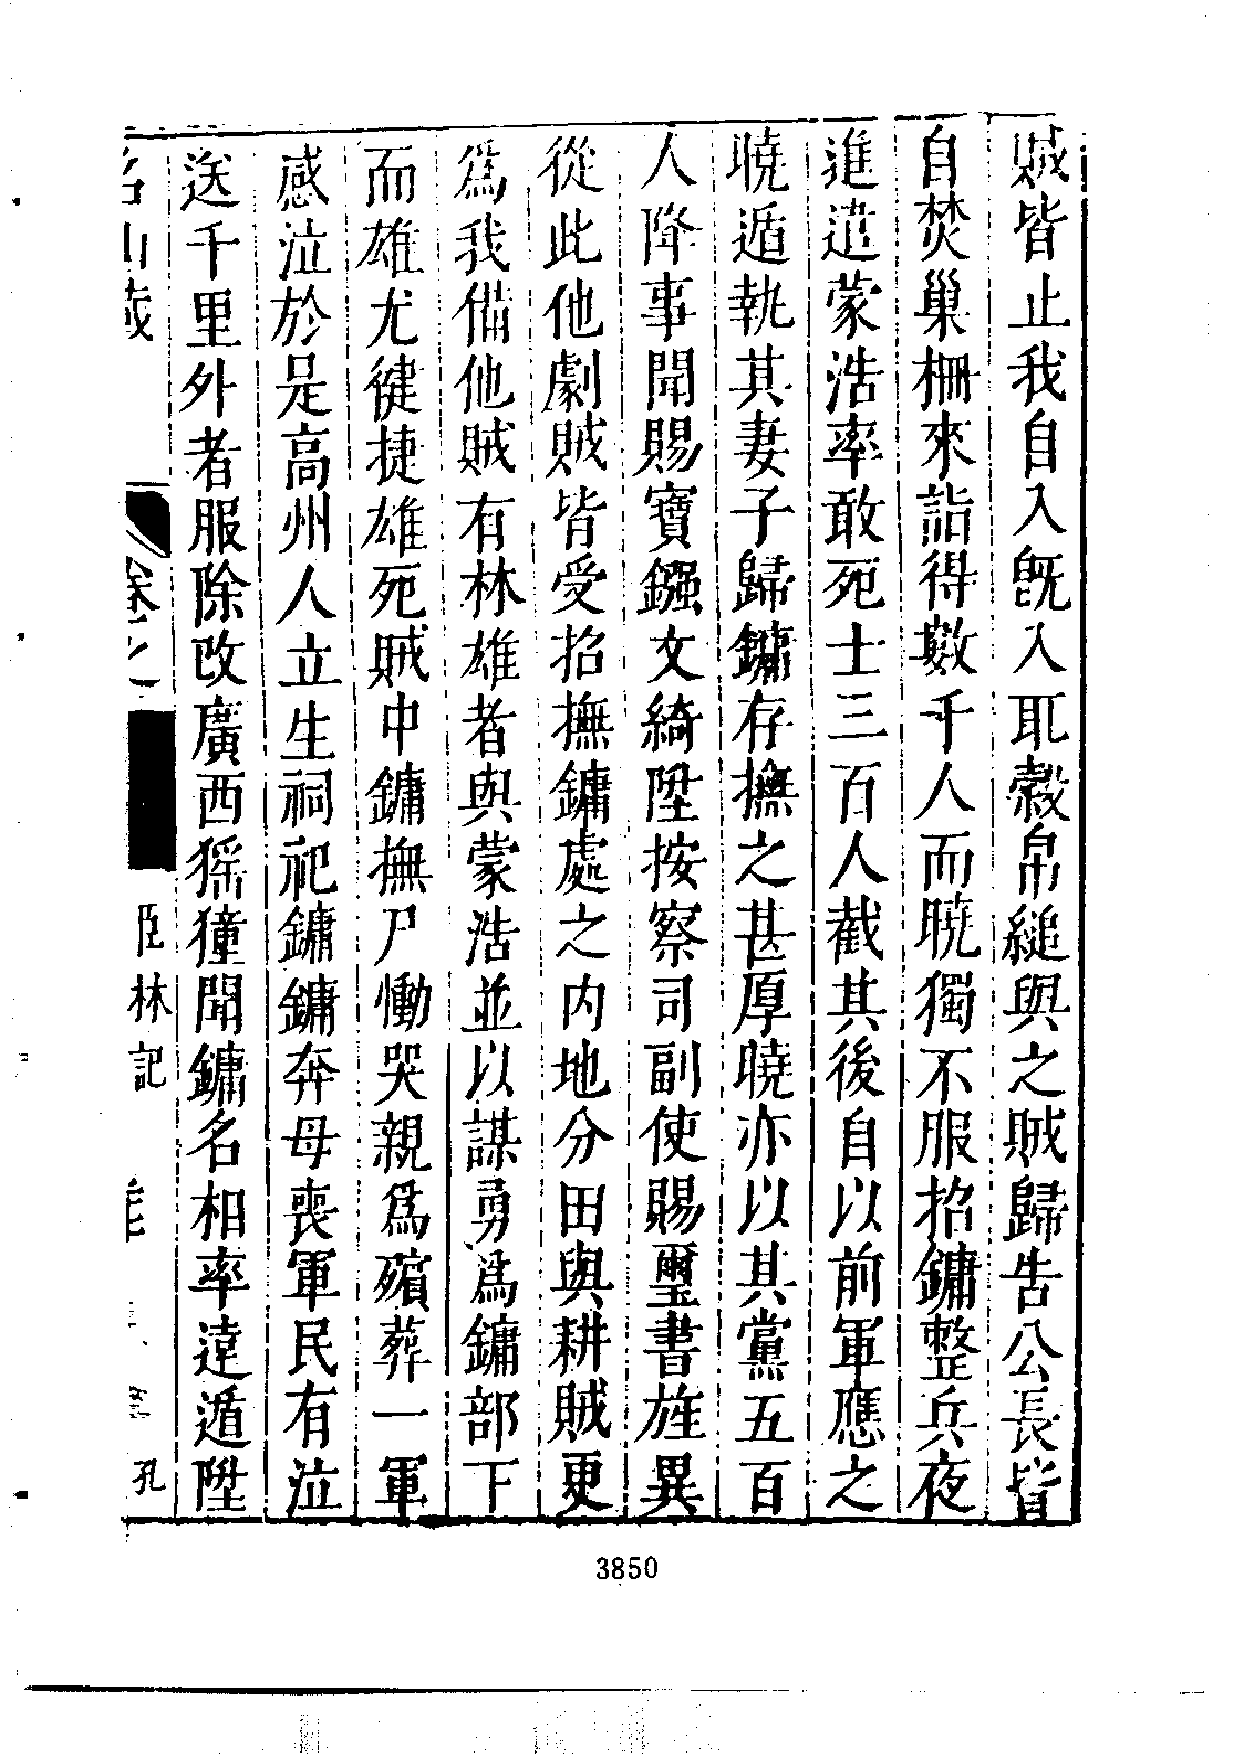 賊皆止我自入旣入耴穀帛縋與之賊歸告公長皆
自焚巢柵來詣得數千人而曉獨不服招鏞整兵夜
進遣蒙浩率敢死士三百人截其後自以前軍應之
曉遁執其妻子歸鏞存撫之甚厚曉亦以其黨五百
人降事聞賜寶鏹文綺陞按察司副使賜璽書旌異
從此他劇賊皆受招撫鏞處之内地分田與耕賊更
爲我備他賊有林雄者與蒙浩並以謀勇爲鏞部下
而雄尤徤捷雄死賊中鏞撫尸慟哭親爲殯葬一軍
感泣於是高州人立生祠祀鏞鏞奔母喪軍民有泣
送千里外者服除改廣西猺獞聞鏞名相率遠遁陞
名山藏
臣林記
孔
3850